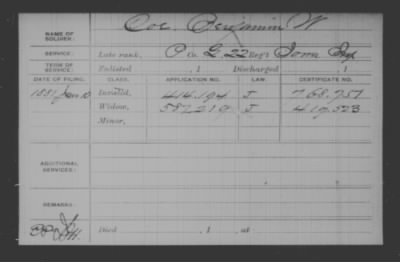 Coe Benjamin W
NAME OF
SOLDIER:
SERVICE: Late rank, P Co. G, 22 Reg't Iowa Inf
TERM OF
SERVICE: Enlisted , 1 Discharged , 1
DATE OF FILING. CLASS. APPLICATION NO. LAW. CERTIFICATE NO.
1881 Jan 10 Invalid, 414.194 J 768.757
Widow, 587,219 J 419,523
Minor,
ADDITIONAL
SERVICES:
REMARKS:
Died , 1 , at